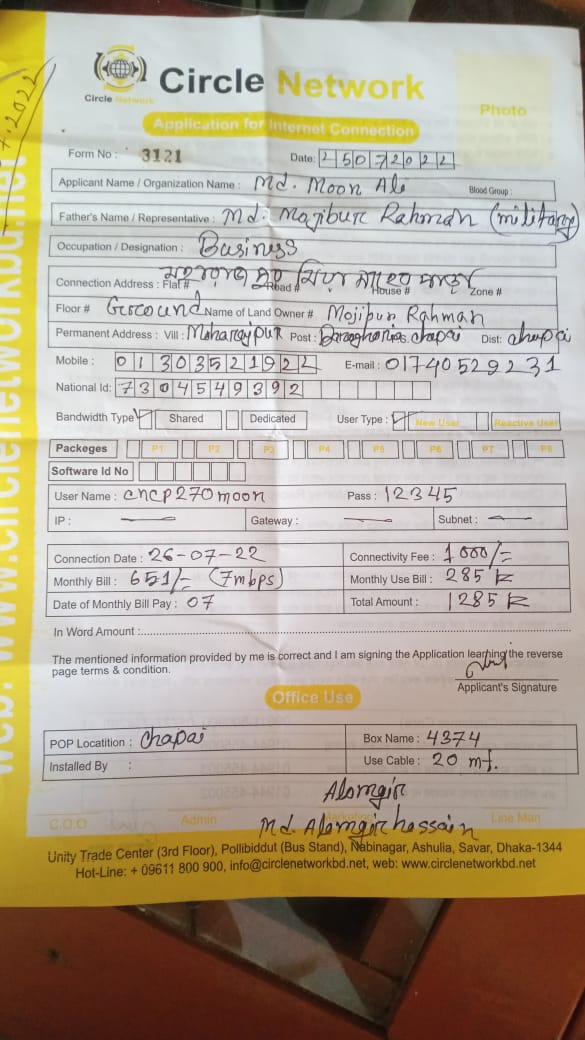 Circle Network
Circle Network
Photo
Application for Internet Connection
Form No : 3121 Date: 25072022
Applicant Name / Organization Name : Md. Moon Ali Blood Group :
Father's Name / Representative : Md. Majibur Rahman (military)
Occupation / Designation : Business
Connection Address : Flat # Road # House # Zone #
Floor # Ground Name of Land Owner # Mojibur Rahman
Permanent Address : Vill : Moharajpur Post : chapai Dist: chapai
Mobile : 01303521922 E-mail : 01740529231
National Id: 7304549392
Bandwidth Type Shared Dedicated User Type : New User Reactive User
Packeges P1 P2 P3 P4 P5 P6 P7 P8
Software Id No
User Name : cncp270moon Pass : 12345
IP : — Gateway : — Subnet : —
Connection Date : 26-07-22 Connectivity Fee : 1000/=
Monthly Bill : 651/= (7mbps) Monthly Use Bill : 285 tk
Date of Monthly Bill Pay : 07 Total Amount : 1285 tk
In Word Amount :
The mentioned information provided by me is correct and I am signing the Application learning the reverse
page terms & condition.
Applicant's Signature
Office Use
POP Locatition : Chapai Box Name : 4374
Installed By : Use Cable : 20 mt.
Alomgir
C.O.O Admin Marketing Line Man
Md. Alomgir hossain
Unity Trade Center (3rd Floor), Pollibiddut (Bus Stand), Nabinagar, Ashulia, Savar, Dhaka-1344
Hot-Line: + 09611 800 900, info@circlenetworkbd.net, web: www.circlenetworkbd.net
web: www.circlenetworkbd.net